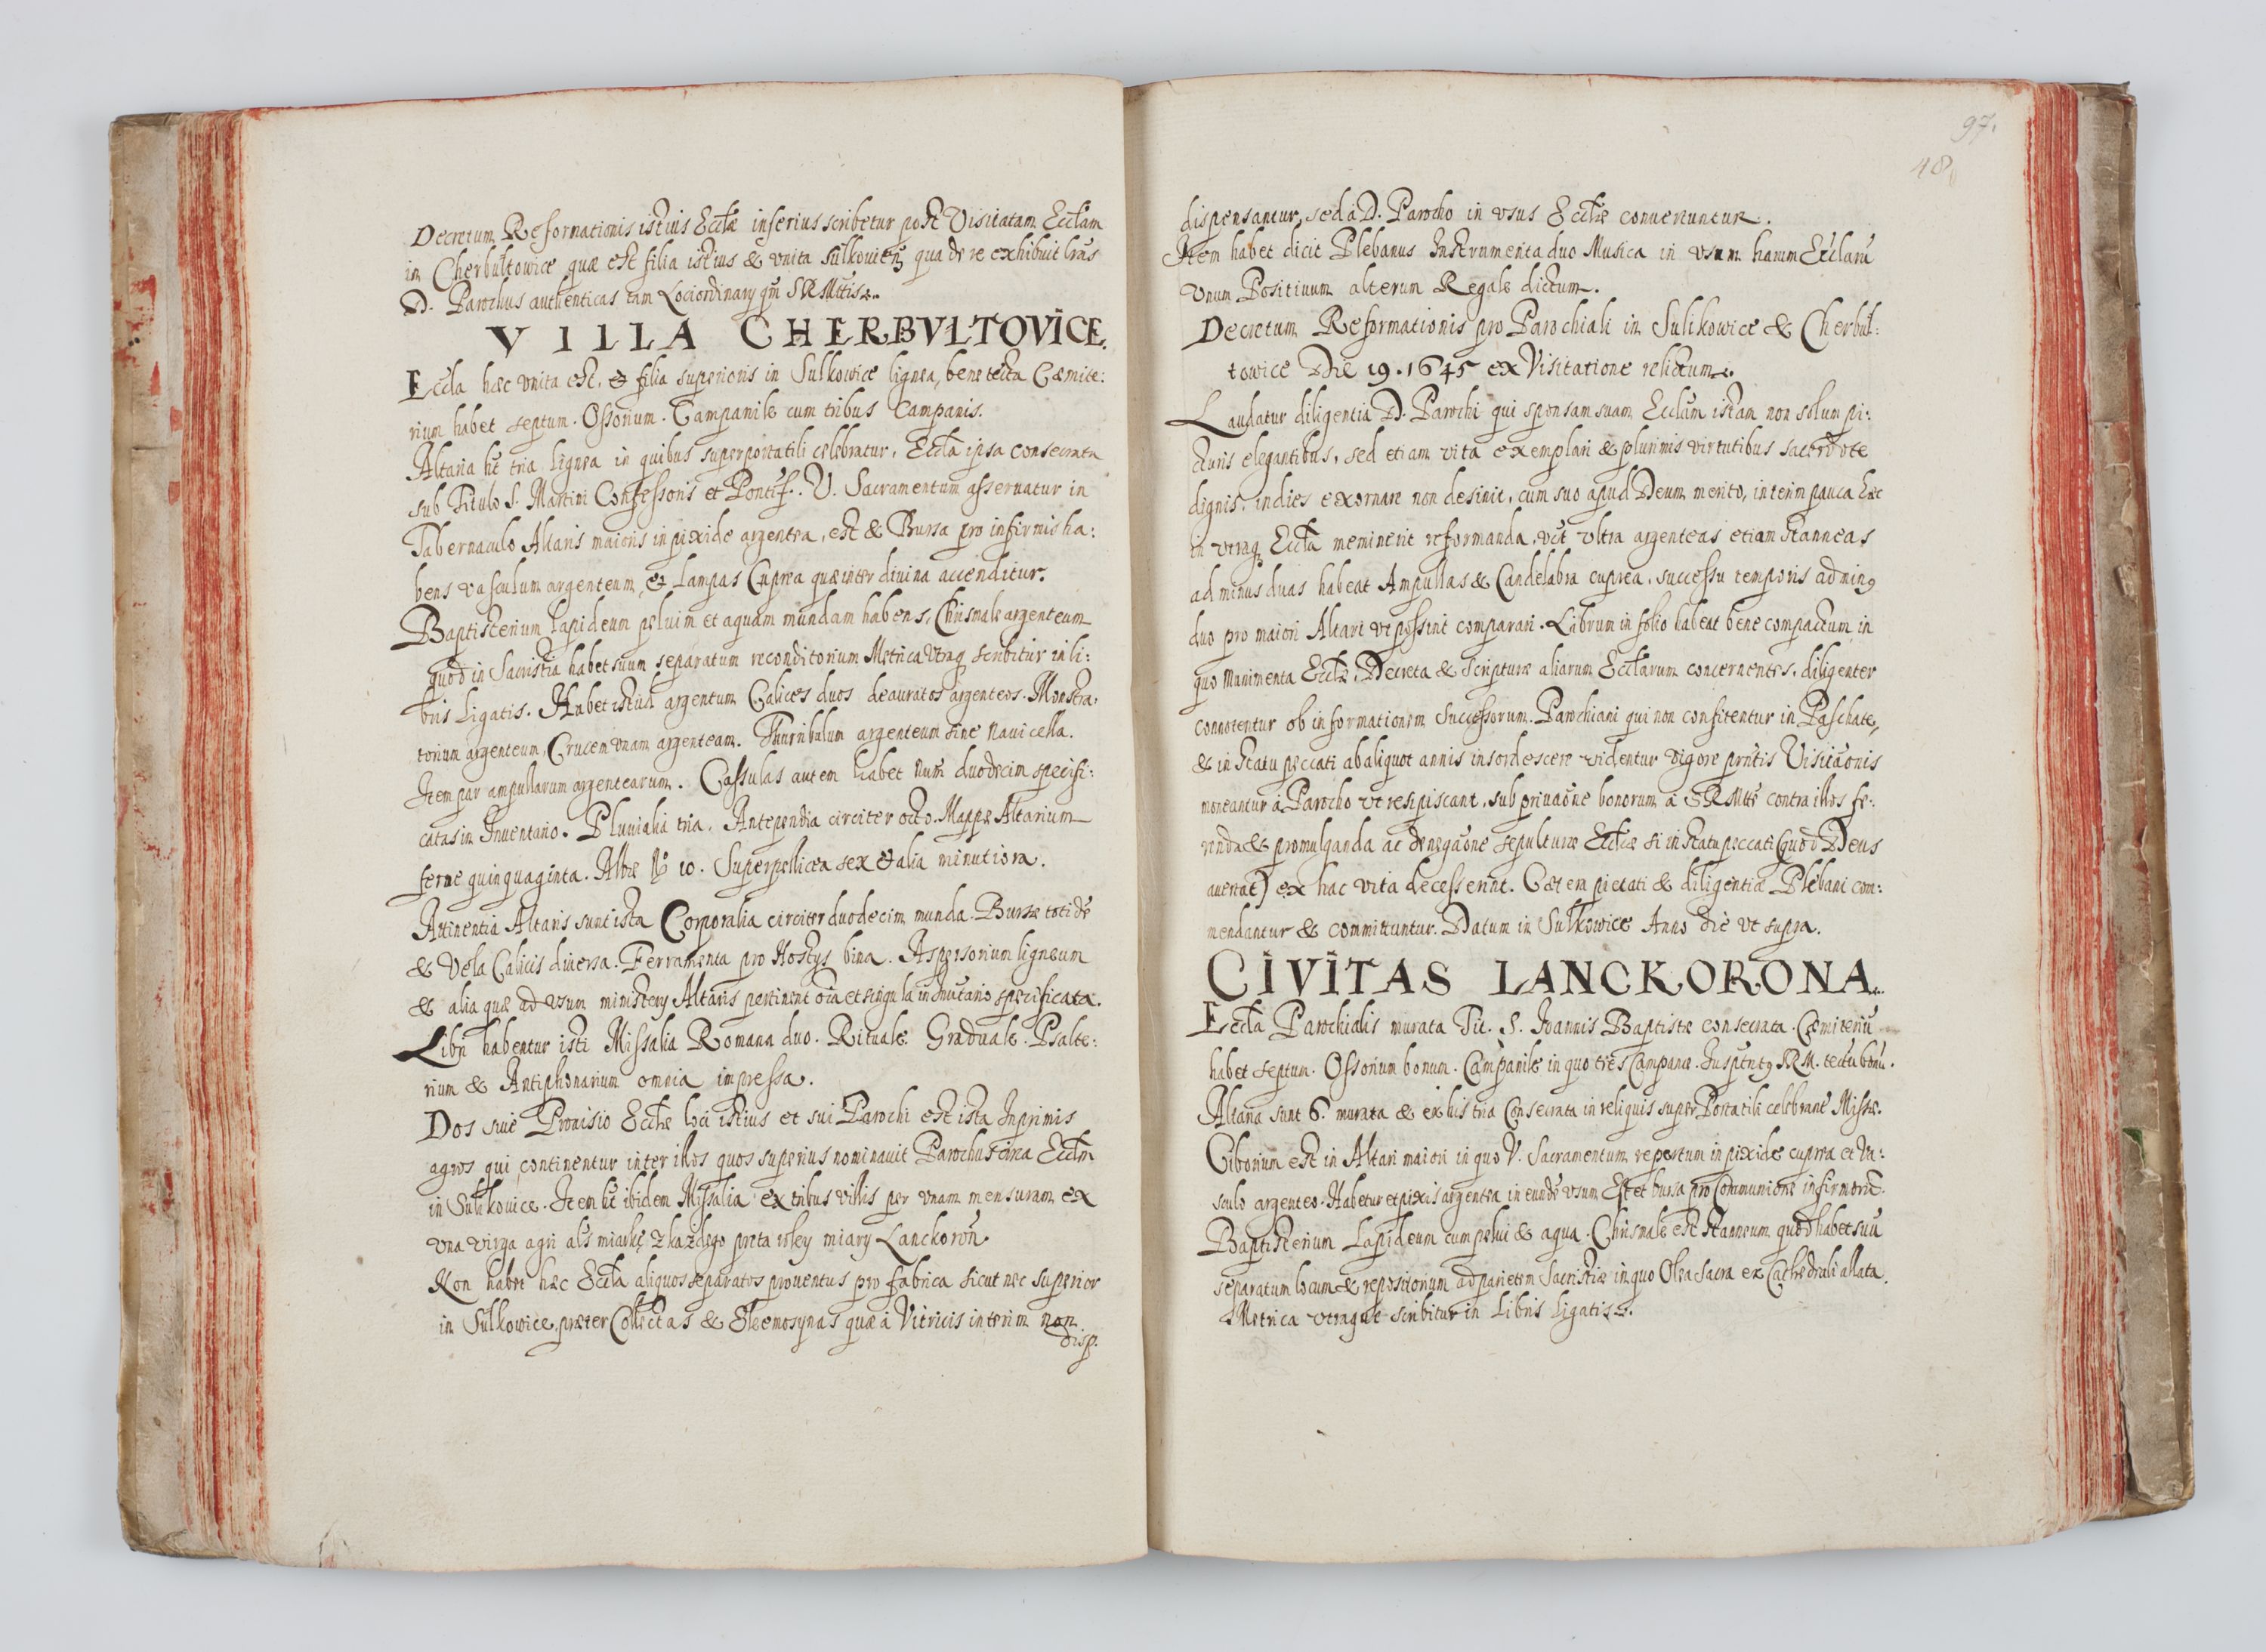 Decretum Reformationis istius Eccłæ inferius scribetur post Visitatam Eccłam
in Cherbułtowice quæ est filia istius & vnita Sulkovien̄ qua de re exhibuit lr̄as
D. Parochus authenticas tam Lociordinarÿ qm̄ SRMttis.
VILLA CHERBVLTOVICE.
Eccła hæc vnita est, et filia superioris in Sulkowice lignea, bene tecta Cæmite:
rium habet septum. Ossorium. Campanile cum tribus Campanis.
Altaria ht̄ tria lignea in quibus superportatili celebratur. Eccła ipsa consecrata
sub Titulo S. Martini Confessoris et Pontif. V. Sacramentum asseruatur in
Tabernaculo Altaris maioris in pixide argentea, est & Bursa pro infirmis ha:
bens vasculum argenteum, et Lampas Cuprea quæ inter diuina accenditur.
Baptisterium lapideum peluim et aquam mundam habens, Chrismale argenteum
quod in Sacristia habet suum separatum reconditorium Metrica vtraq scribitur in li:
bris Ligatis. Habet istud argentum Calices duos deauratos argenteos. Monstra:
torium argenteum, Crucem vnam argenteam. Thuribulum argenteum sine Nauicella.
Item par ampullarum argentearum. Cassulas autem habet num̄ duodecim specifi:
catas in Inuentario. Pluuialia tria. Antependia circiter octo. Mappæ Altarium
ferme quinquaginta. Albæ No 10. Superpellicea sex et alia minutiora.
Attinentia Altaris sunt ista Corporalia circiter duodecim munda. Bursæ totidē
& Vela Calicis diuersa. Ferramenta pro Hostijs bina. Aspersorium ligneum
& alia quæ ad vsum ministerÿ Altaris pertinent oīa et singula in Inuētario specificata.
Libri habentur isti Missalia Romana duo. Rituale. Graduale. Psalte:
rium & Antiphonarium omnia impressa.
Dos siue Prouisio Eccłæ loci istius et sui Parochi est ista Inprimis
agros qui continentur inter illos quos superius nominauit Parochus circa Eccłm
in Sulkowice. Item hr̄ ibidem Missalia ex tribus villis per vnam mensuram ex
vna virga agri als miarkę z każdego pręta roley miary Lanckoroń
Non habet hæc Eccła aliquos separatos prouentus pro fabrica sicut nec superior
in Sulkowice, præter Collectas & Eleemosynas quæ à Vitricis interim non
disp.
97.
48
dispensantur, sed à D. Parocho in vsus Eccłæ conuertuntur.
Item habet dicit Plebanus Instrumenta duo Musica in vsum harum Eccłarū
Vnum Positiuum alterum Regale dictum.
Decretum Reformationis pro Parochiali in Sulikowice & Cherbuł:
towice Die 19. 1645 ex Visitatione relictum.
Laudatur diligentia D. Parochi qui sponsam suam Eccłam istam non solum pi:
cturis elegantibus, sed etiam vita exemplari & plurimis virtutibus sacerdote
dignis, indies exornare non desinit, cum suo apud Deum merito, interim pauca hæc
in vtraq Eccła meminerit reformanda, vt vltra argenteas etiam stanneas
ad minus duas habeat Ampullas & Candelabra cuprea, successu temporis ad min9
duo pro maiori Altari vt possint comparari. Librum in folio habeat bene compactum, in
quo Munimenta Eccłæ, Decreta & Scripturæ aliarum Eccłarum concernentes, diligenter
connotentur ob informationem Successorum. Parochiani qui non confitentur in Paschate,
& in statu peccati ab aliquot annis insordescere videntur vigore prn̄tis Visitāonis
moneantur à Parocho vt resipiscant, sub priuaōne bonorum à SRMtte contra illos fe:
renda & promulganda ac denegaōne sepulturæ Eccłæ si in statu peccati (quod Deus
auertat) ex hac vita decesserint. Cætera pietati & diligentiæ Plebani com:
mendantur & committuntur. Datum in Sulkowice Anno die vt supra.
CIVITAS LANCKORONA.
Eccła Parochialis murata Tit. S. Joannis Baptistæ consecrata. Cœmiteriū
habet septum. Ossorium bonum. Campanile in quo tres Campanæ. RM. tectū bonū.
Altaria sunt 6. murata & ex his tria Consecrata in reliquis super Portatili celebrant̄ Missæ.
Ciborium est in Altari maiori in quo V. Sacramentum repertum in pixide cuprea et Va:
sculo argenteo. Habetur et pixis argentea in eundē vsum Est et bursa pro Communione infirmorū.
Baptisterium Lapideum cum pelui & aqua. Chrismale est stanneum quod habet suū
separatum locum & repositorium ad parietem Sacristiæ in quo Olea Sacra ex Cathedrali allata.
Metrica vtraque scribitur in Libris ligatis.